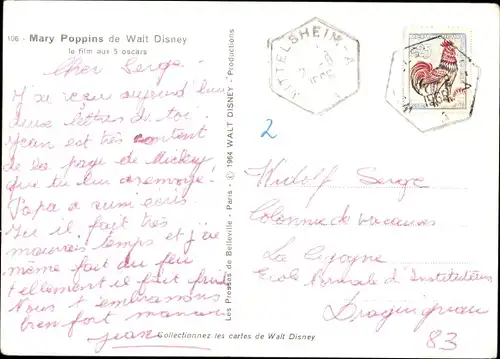 106 - Mary Poppins de Walt Disney
le film aux 5 oscars
Cher Serge
J'ai reçu aujourd'hui
deux lettres de toi.
Jean est très content
de la page de Mickey
que tu lui as envoyé.
Papa a aussi écris
Ici il fait très
mauvais temps et j'ai
même fait du feu
tellement il fait froid
Nous t'embrassons
bien fort maman
jean
Collectionnez les cartes de Walt Disney
Les Presses de Belleville - Paris - © 1964 WALT DISNEY - Productions
MITTELSHEIM-A
1966
2
Widolf Serge
Colonie de vacances
La Cigogne
Ecole Normale d'Instituteurs
Draguignan
83